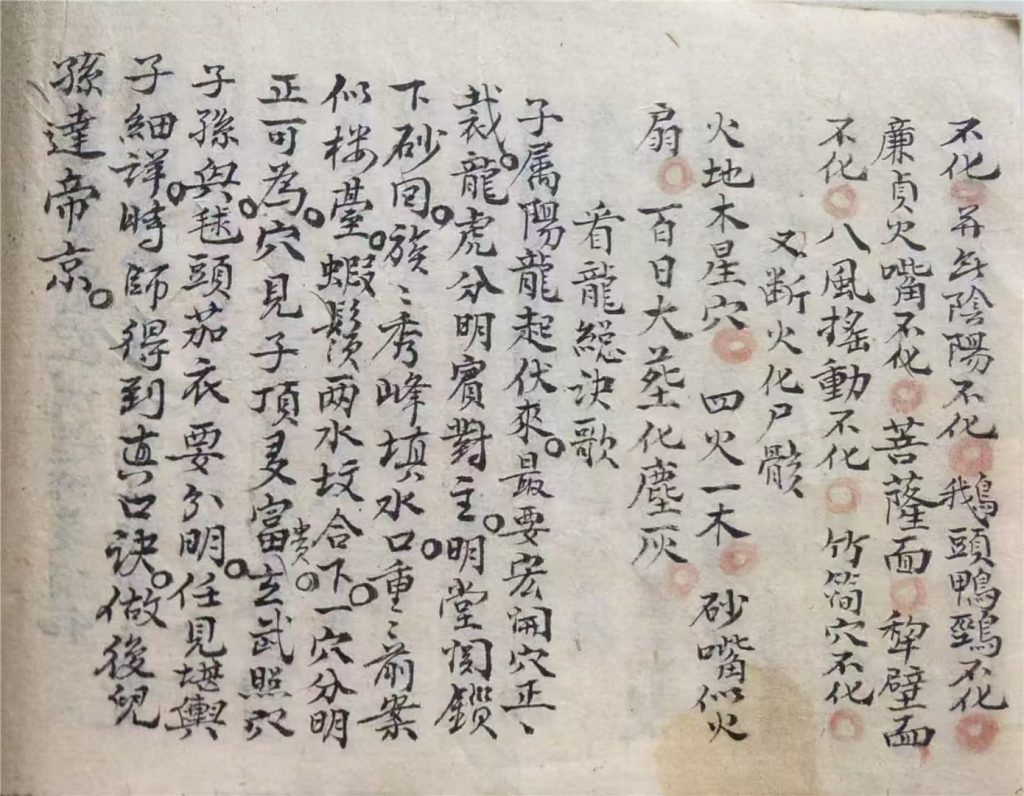 不化 并无陰陽不化 鵝頭鴨頸不化
廉貞火嘴不化 菩薩面 犂壁面
不化 八風摇動不化 竹筒穴不化
又断火化尸骸
火地木星穴 四火一木 砂嘴似火
扇 百日大葬化塵灰
看龍総訣歌
子属陽龍起伏來。最要宏開穴正〻
裁。龍虎分明賓對主。明堂関鎖
下砂回。簇〻秀峰填水口。重〻前案
似楼臺。蝦鬚两水坟合下。一穴分明
正可為。穴見子頂旲富貴。玄武照穴
子孫興。毬頭茄衣要分明。任見堪輿
子細詳。時師得到真口訣。做後兒
孫達帝京。